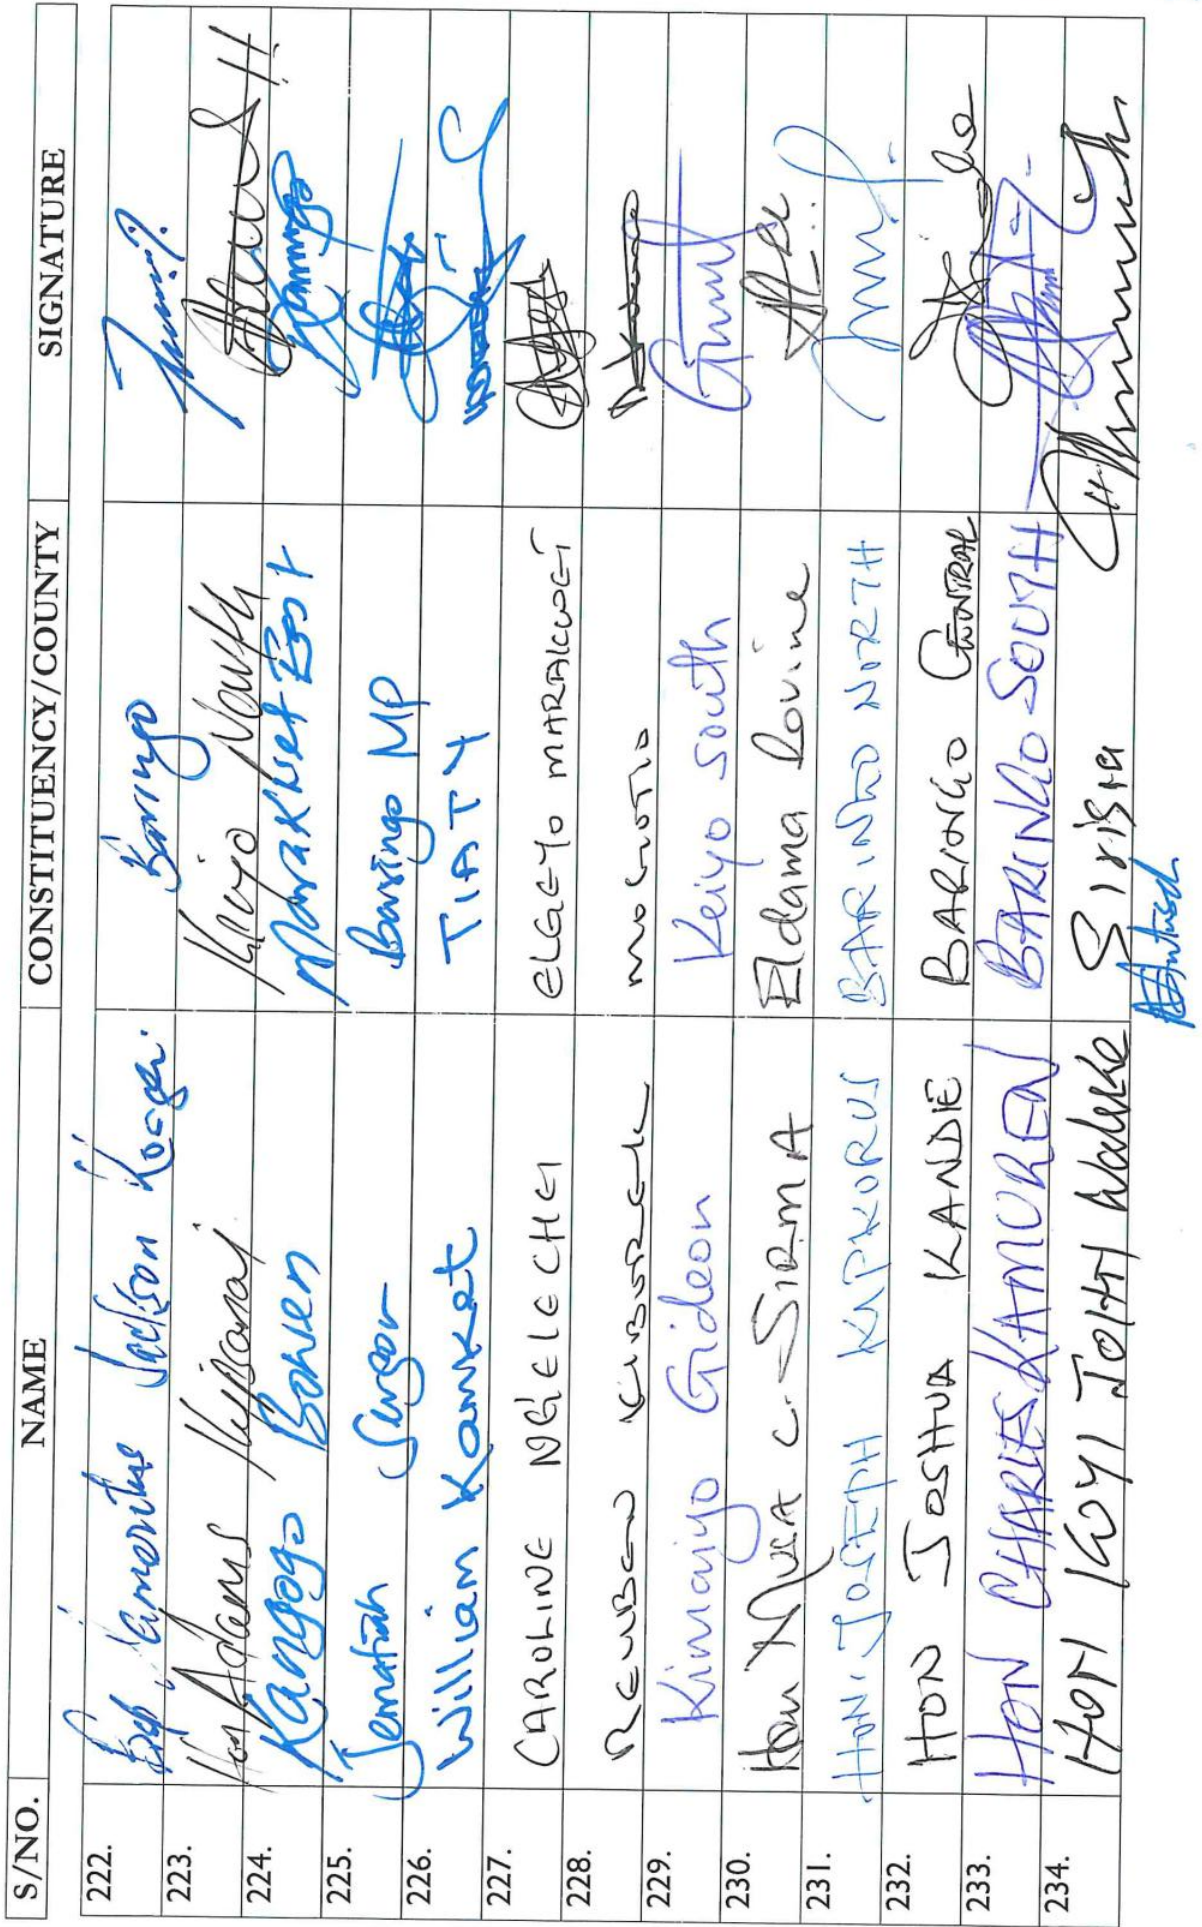 S/NO. NAME CONSTITUENCY/COUNTY SIGNATURE
222. Jackson Baringo
223. Hon Adams Kipsanai Keiyo North
224. Kangogo Bowen Marakwet East
225. Jematiah Sergon Baringo MP
226. William Kamket TIATY
227. CAROLINE NGELECHEI ELGEYO MARAKWET
228. REUBEN MOGOTIO
229. Kimaiyo Gideon Keiyo South
230. Hon Musa C. SIRMA Eldama Ravine
231. HON. JOSEPH BARINGO NORTH
232. HON JOSHUA KANDIE BARINGO CENTRAL
233. HON CHARLES KAMUREN BARINGO SOUTH
234. HON KOYI JOHN Waluke Sirisia